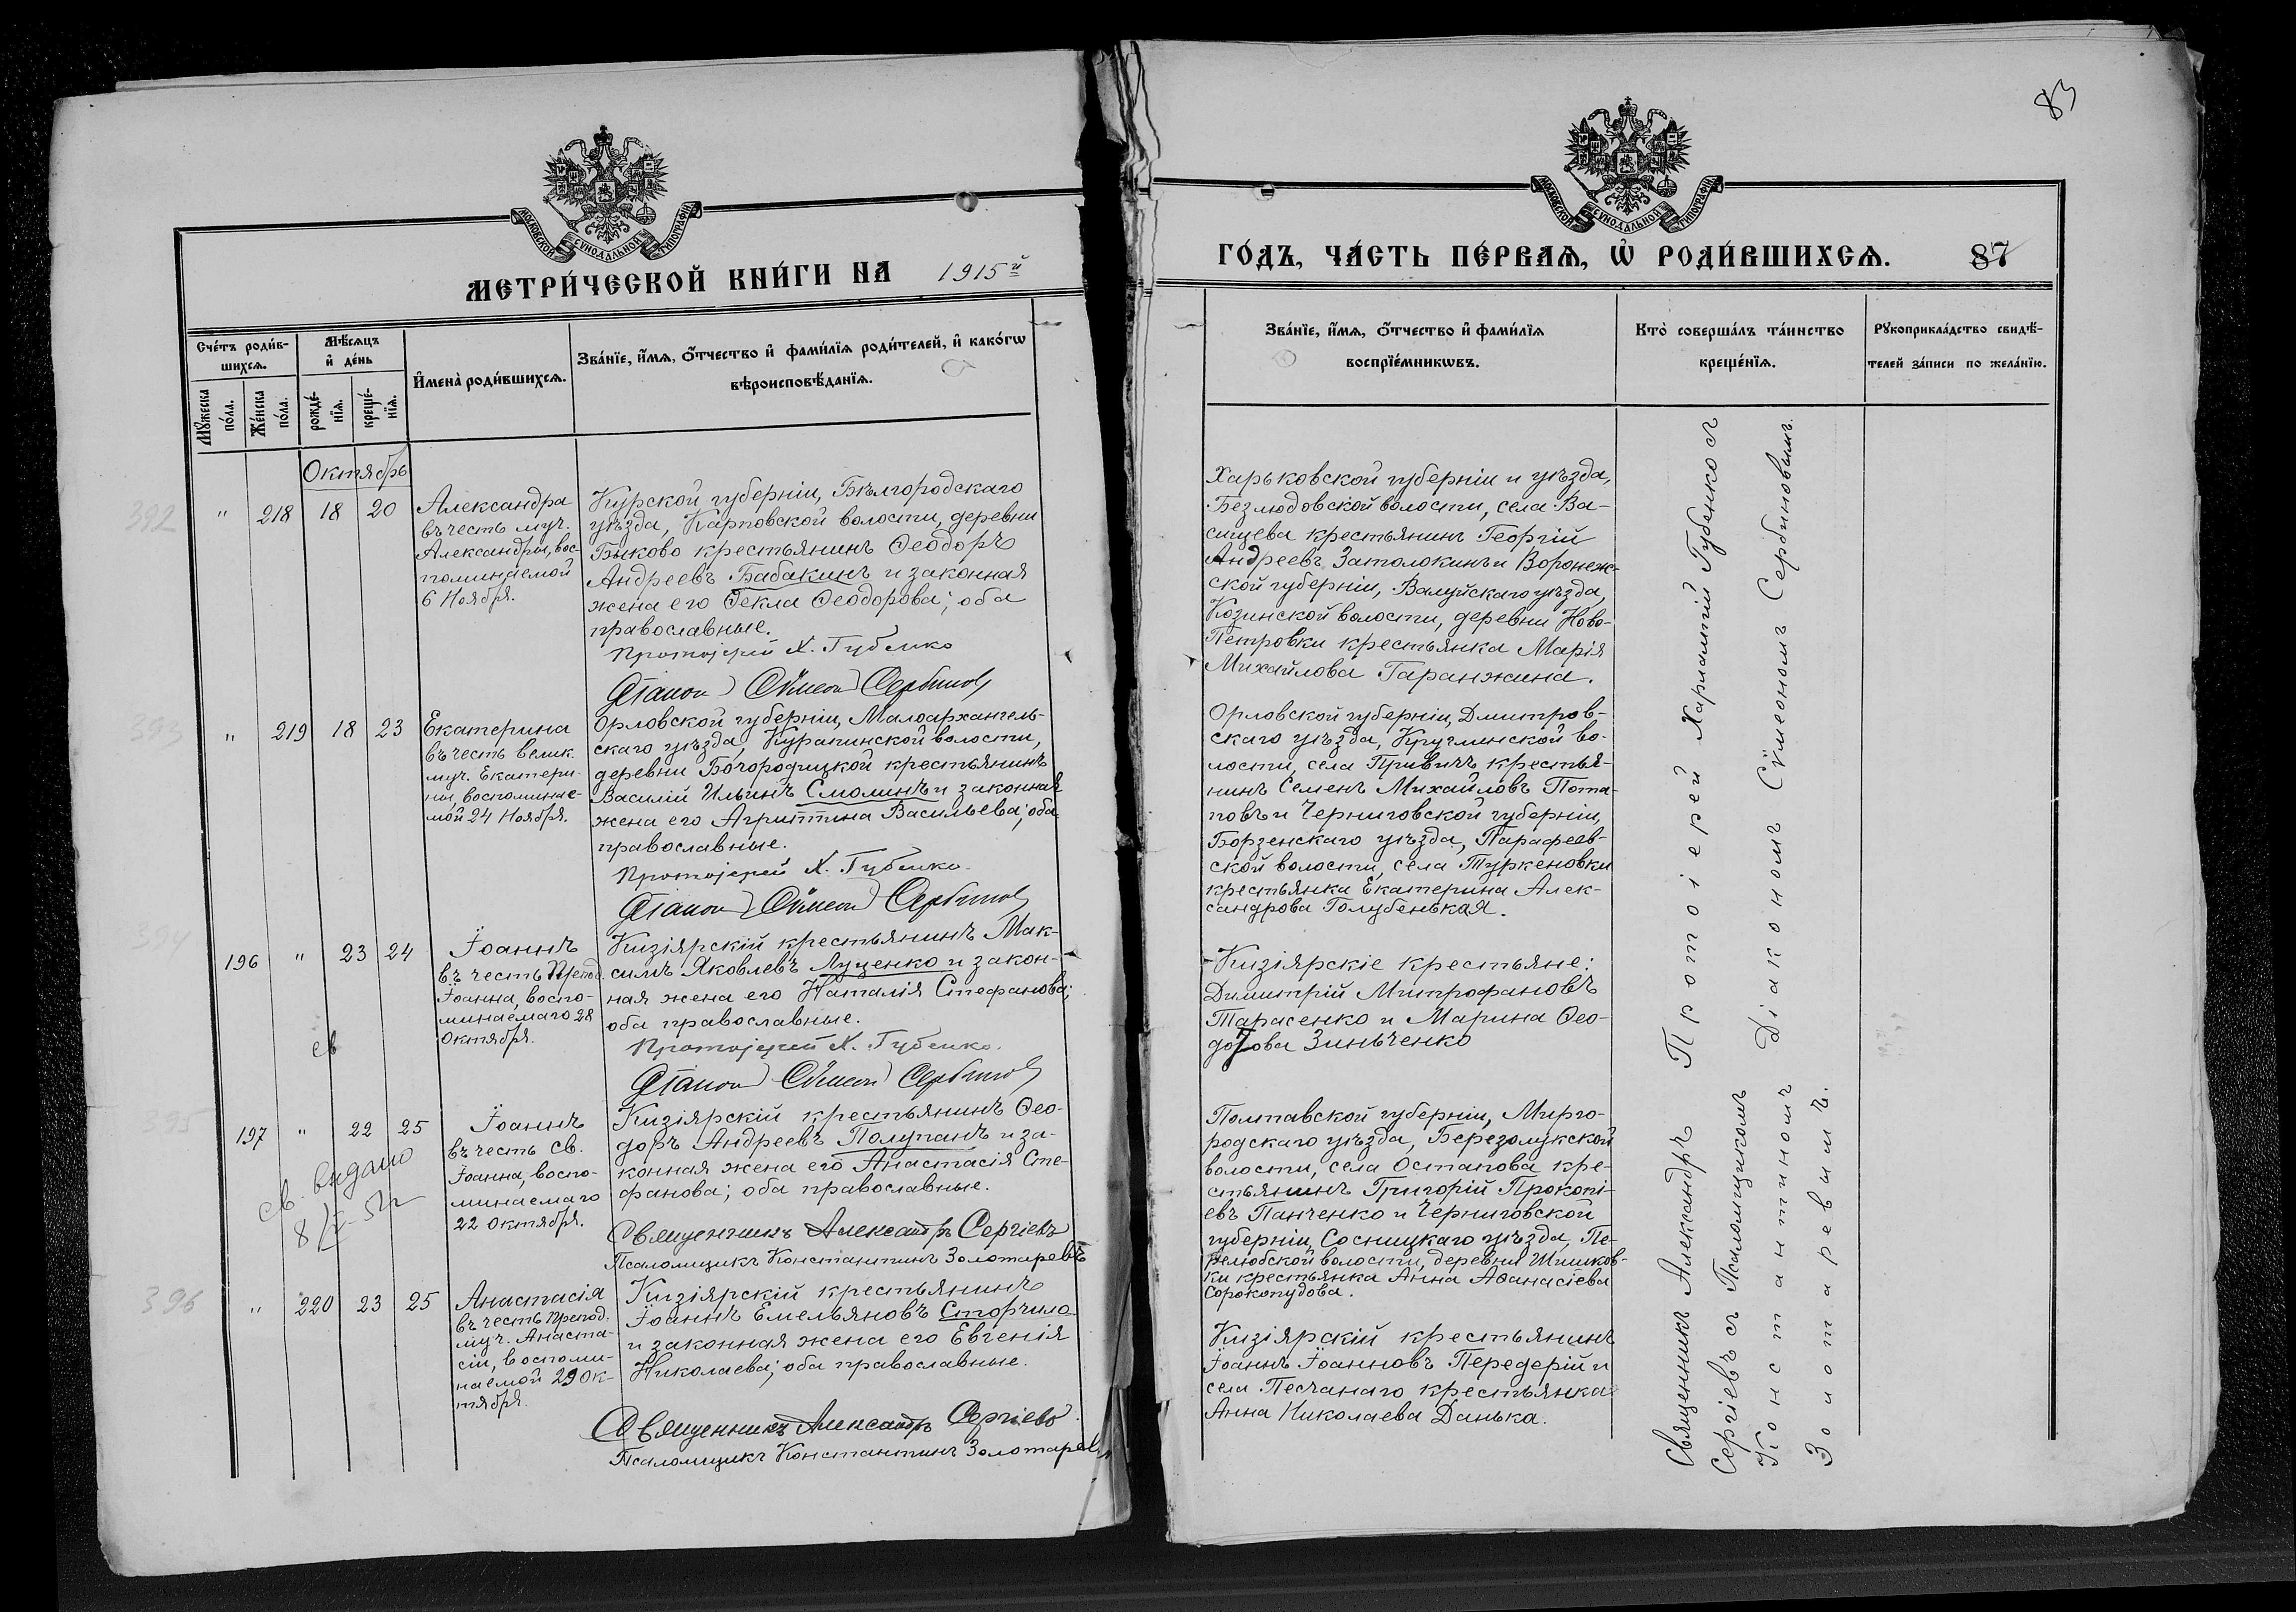 83
МОСКОВСКОЙ СУНОДАЛЬНОЙ ТИПОГРАФІИ
МЕТРИ́ЧЕСКОЙ КНИ́ГИ НА 1915й
Сче́тъ роди́в-
шихсѧ.
Мѣ́сѧцъ
и҆ де́нь
Мꙋ́жеска
по́ла.
Же́нска
по́ла.
рожде́-
нїѧ.
креще́-
нїѧ.
И҆мена̀ роди́вшихсѧ.
Зва́нїе, и҆́мѧ, ѻ҆́тчество и҆ фами́лїѧ роди́телей, и҆ како́гѡ
вѣроисповѣ́данїѧ.
Октябрь
392
" 218 18 20
Александра
въ честь муч.
Александры, вос-
поминаемой
6 Ноября.
Курской губерніи, Бѣлгородскаго
уѣзда, Карповской волости, деревни
Быково крестьянинъ Ѳеодоръ
Андреевъ Бабакинъ и законная
жена его Ѳекла Ѳеодорова; оба
православные.
Протоіерей Х. Губенко
Діаконъ Сѵмеонъ Сербиновъ
393
" 219 18 23
Екатерина
въ честь велик.
муч. Екатери-
ны, воспоминае-
мой 24 Ноября.
Орловской губерніи, Малоархангель-
скаго уѣзда, Куракинской волости,
деревни Богородицкой крестьянинъ
Василій Ильинъ Смолинъ и законная
жена его Агриппина Васильева; оба
православные.
Протоіерей Х. Губенко.
Діаконъ Сѵмеонъ Сербиновъ
394
196 " 23 24
Іоаннъ
въ честь Препод.
Іоанна, воспо-
минаемаго 28
Октября.
св
Кизіярскій крестьянинъ Мак-
симъ Яковлевъ Луценко и закон-
ная жена его Наталія Стефанова;
оба православные.
Протоіерей Х. Губенко.
Діаконъ Сѵмеонъ Сербиновъ
395
197 " 22 25
Іоаннъ
въ честь св.
Іоанна, воспо-
минаемаго
22 Октября.
св. видано
Кизіярскій крестьянинъ Ѳео-
доръ Андреевъ Полупанъ и за-
конная жена его Анастасія Сте-
фанова; оба православные.
Священникъ Александръ Сергіевъ
Псаломщикъ Константинъ Золотаревъ
396
" 220 23 25
Анастасія
въ честь Препод.
муч. Анаста-
сіи, воспоми-
наемой 29 Ок-
тября.
Кизіярскій крестьянинъ
Іоаннъ Емельяновъ Сторчило
и законная жена его Евгенія
Николаева; оба православные.
Священникъ Александръ Сергіевъ
Псаломщикъ Константинъ Золотаревъ
МОСКОВСКОЙ СУНОДАЛЬНОЙ ТИПОГРАФІИ
ГО́ДЪ, ЧА́СТЬ ПЕ́РВАѦ, Ѡ҆ РОДИ́ВШИХСѦ. 87
Зва́нїе, и҆́мѧ, ѻ҆́тчество и҆ фами́лїѧ
воспрїе́мникѡвъ.
Кто̀ соверша́лъ та́инство
креще́нїѧ.
Рꙋкоприкла́дство свидѣ́-
телей за́писи по жела́нїю.
Харьковской губерніи и уѣзда,
Безлюдовской волости, села Ва-
сищева крестьянинъ Георгій
Андреевъ Затолокинъ и Воронеж-
ской губерніи, Валуйскаго уѣзда,
Козинской волости, деревни Ново-
Петровки крестьянка Марія
Михайлова Гаранжина.
Орловской губерніи, Дмитров-
скаго уѣзда, Круглинской во-
лости, села Привичъ крестья-
нинъ Семенъ Михайловъ Пота-
повъ и Черниговской губерніи,
Борзенскаго уѣзда, Парафеев-
ской волости, села Туркеновки
крестьянка Екатерина Алек-
сандрова Голубенькая.
Кизіярскіе крестьяне:
Димитрій Митрофановъ
Тарасенко и Марина Ѳео-
дорова Зинченко
Полтавской губерніи, Мирго-
родскаго уѣзда, Березолукской
волости, села Остапова кре-
стьянинъ Григорій Прокопі-
евъ Панченко и Черниговской
губерніи, Сосницкаго уѣзда, Пе-
релюбской волости, деревни Шишков-
ки крестьянка Анна Аѳанасіева
Сорокопудова.
Кизіярскій крестьянинъ
Іоаннъ Іоанновъ Передерій и
села Песчанаго крестьянка
Анна Николаева Данька.
Протоіерей Харлампій Губенко съ
Діакономъ Сѵмеономъ Сербиновымъ.
Священникъ Александръ
Сергіевъ съ Псаломщикомъ
Константиномъ
Золотаревымъ.